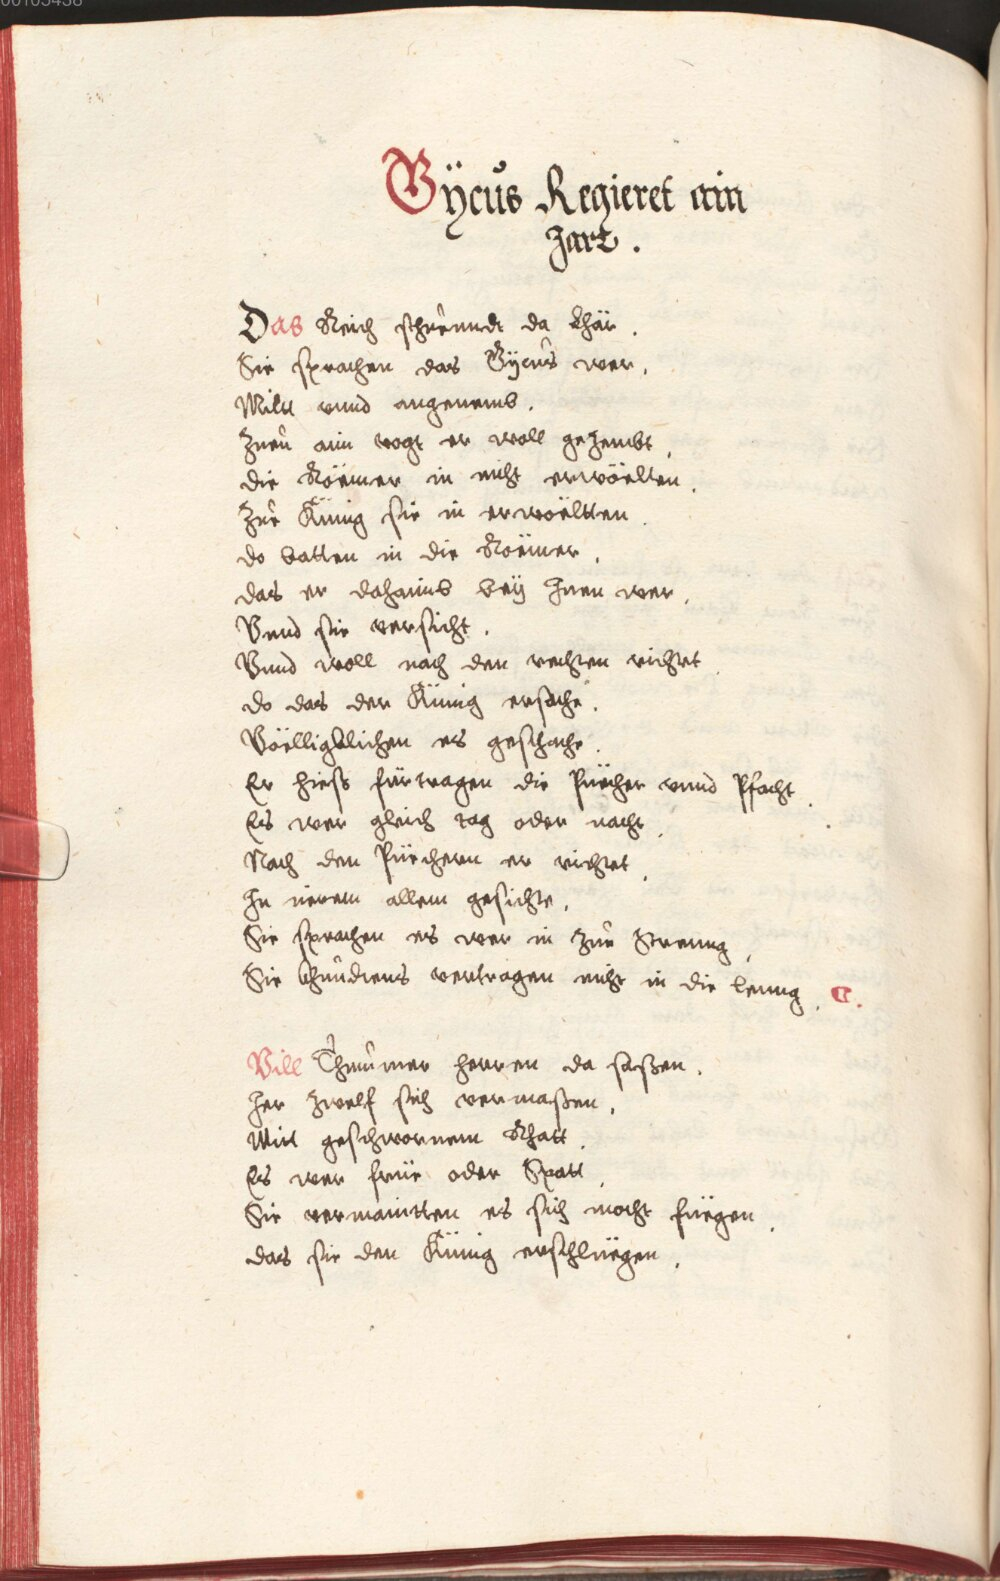 00105438
Gÿcus Regieret ain
Jart .
Das Reich schreundt da Lhär .
Sie sprachen das Gÿcus wer .
Milt vnnd angenemb .
Zueu ain vogt er woll gezembt .
die Röemer in nicht erwöelten .
Zue Künig sie in erwoëltten .
do batten in die Roëmer .
das er dahaimb beÿ Inen wer .
Vnnd sie versicht .
Vnnd woll nach den rechten richtet .
do das der Künig ersache .
Völligklichen es geschache .
Er hiess fürtragen die Püecher vnnd Pfacht .
Es wer gleich tag oder nacht .
Nach den Püechern er richtet .
In ierem allem gesichte .
Sie sprachen es wer in zue Streung .
Sie khundens vertragen nicht in die leung .
Vill Thuûmer herren da saßen .
Her zwelf sich vermaßen .
Mitt geschwornem Rhatt .
Es wer früe oder Spatt .
Sie vermaintten es sich mocht füegen .
das sie den Künig erschlüegen .